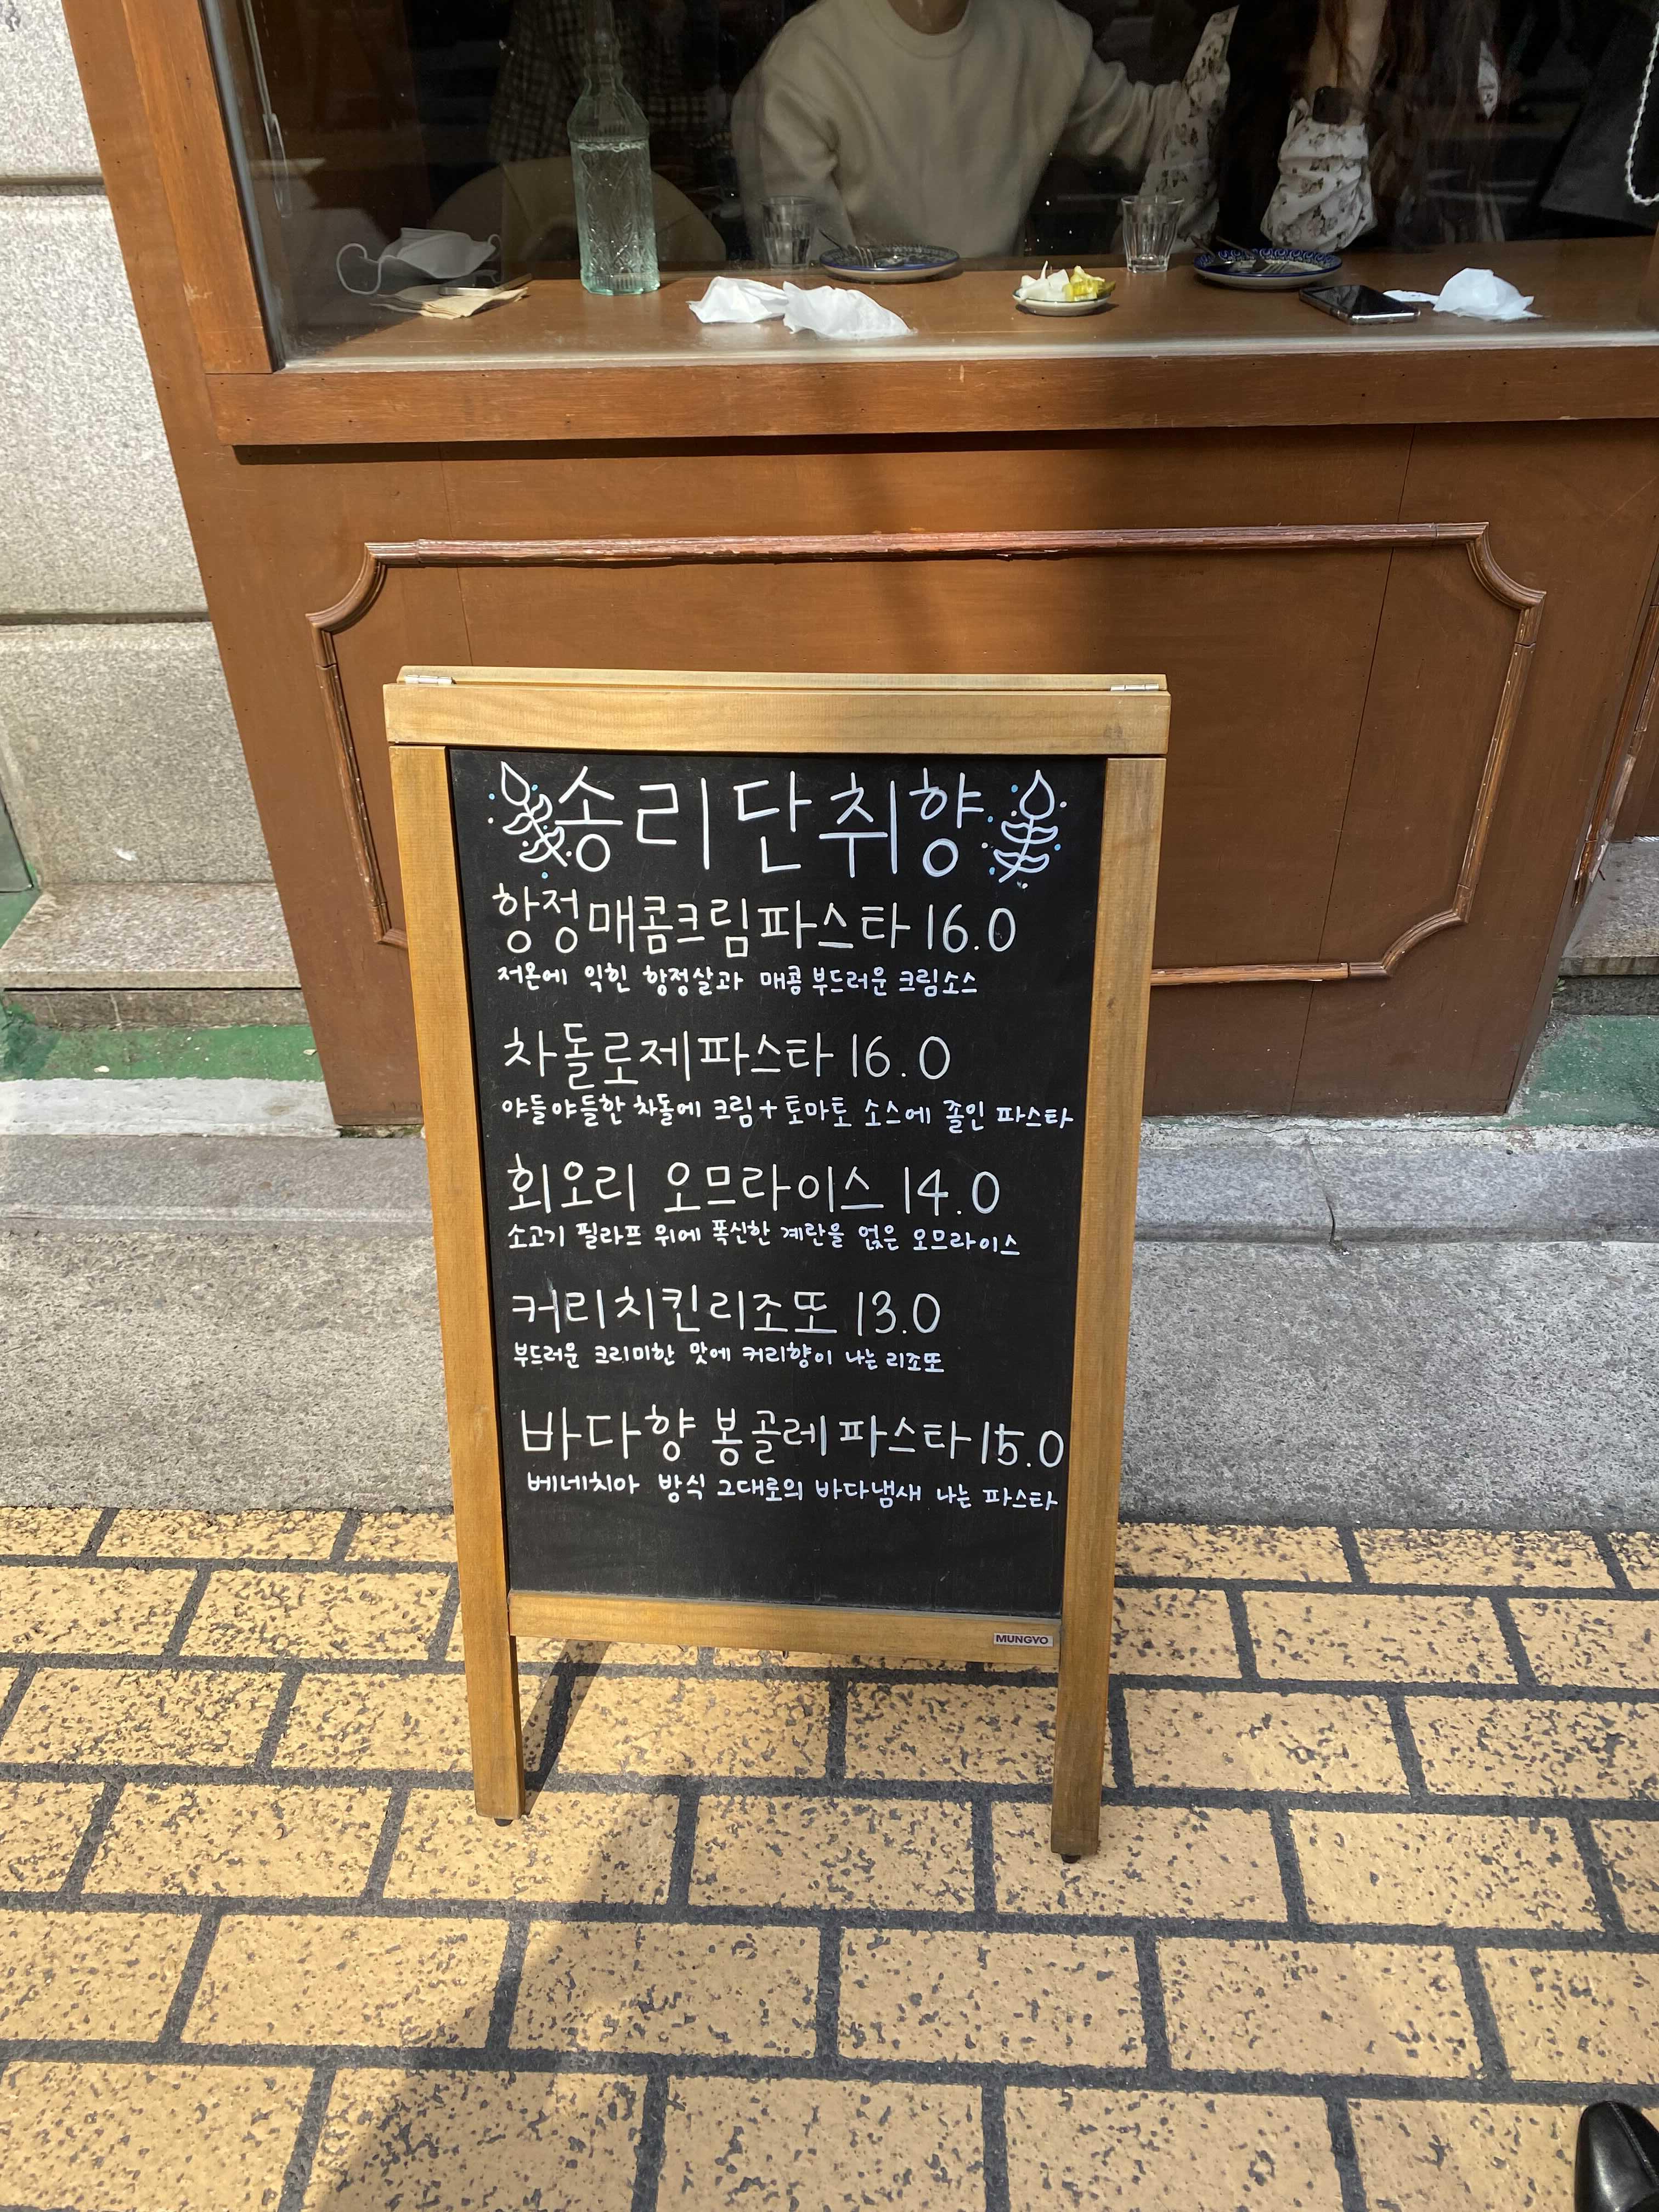 송리단취향
항정매콤크림파스타 16.0
저온에 익힌 항정살과 매콤 부드러운 크림소스
차돌로제파스타 16.0
야들야들한 차돌에 크림+토마토 소스에 졸인 파스타
회오리 오므라이스 14.0
소고기 필라프 위에 폭신한 계란을 얹은 오므라이스
커리치킨리조또 13.0
부드러운 크리미한 맛에 커리향이 나는 리조또
바다향 봉골레파스타 15.0
베네치아 방식 그대로의 바다냄새 나는 파스타
MUNGYO